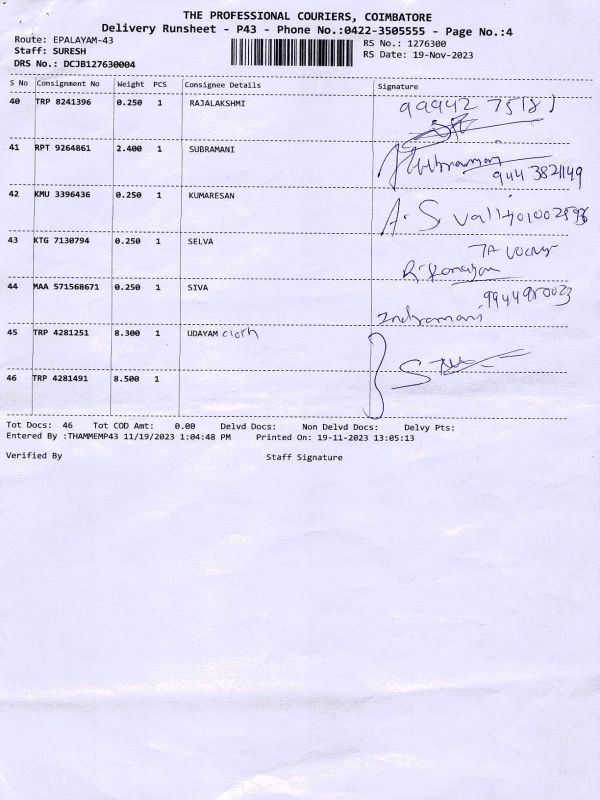 THE PROFESSIONAL COURIERS, COIMBATORE
Delivery Runsheet - P43 - Phone No.:0422-3505555 - Page No.:4
Route: EPALAYAM-43
RS No.: 1276300
Staff: SURESH
RS Date: 19-Nov-2023
DRS No.: DCJB127630004
S No Consignment No Weight PCS Consignee Details Signature
40 TRP 8241396 0.250 1 RAJALAKSHMI 99942 75181
41 RPT 9264861 2.400 1 SUBRAMANI
42 KMU 3396436 0.250 1 KUMARESAN A. S
43 KTG 7130794 0.250 1 SELVA
44 MAA 571568671 0.250 1 SIVA
45 TRP 4281251 8.300 1 UDAYAM cloth
46 TRP 4281491 8.500 1
Tot Docs: 46 Tot COD Amt: 0.00 Delvd Docs: Non Delvd Docs: Delvy Pts:
Entered By :THAMMEMP43 11/19/2023 1:04:48 PM Printed On: 19-11-2023 13:05:13
Verified By Staff Signature